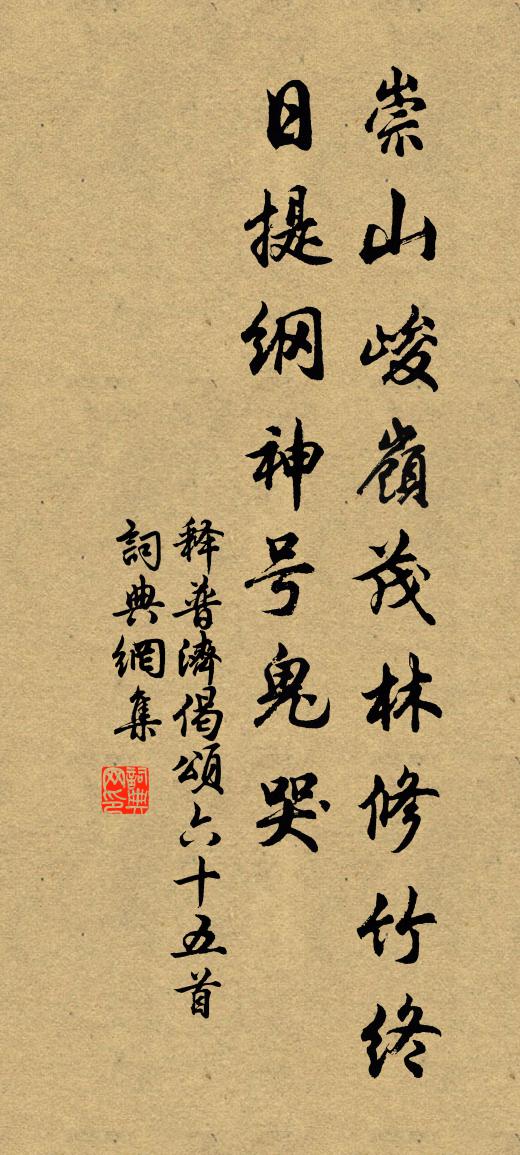 崇山峻嶺茂林修竹终
日提纲神号鬼哭
释普濟偈頌六十五首
詞典網集
詞典网印